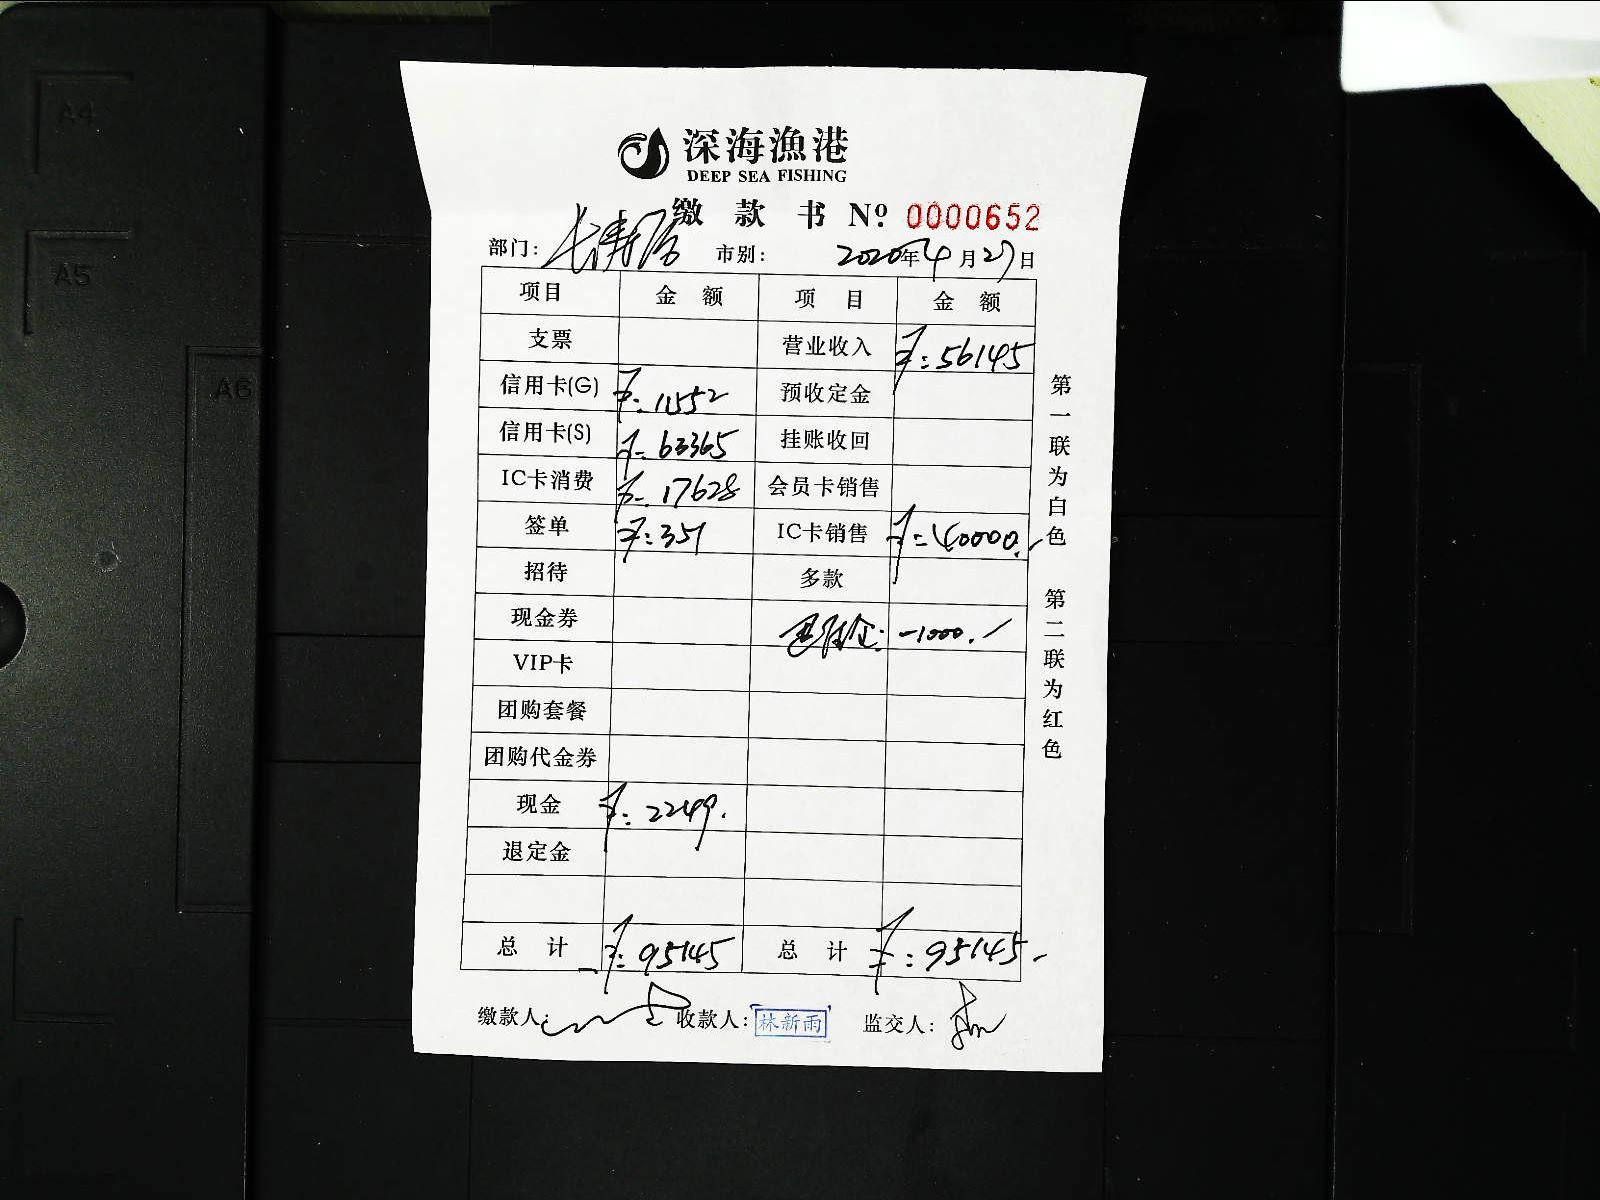 A4
A5
A6
深海漁港
DEEP SEA FISHING
缴款书 Nº 0000652
部门: 长寿店 市别: 2020年4月27日
项目 金额 项目 金额
支票 营业收入 ¥:56145
信用卡(G) ¥:11552 预收定金
信用卡(S) ¥:63365 挂账收回
IC卡消费 ¥:17628 会员卡销售
签单 ¥:351 IC卡销售 ¥:40000.
招待 多款
现金券 -1000.
VIP卡
团购套餐
团购代金券
现金 ¥:2249.
退定金
总计 ¥:95145 总计 ¥:95145
缴款人: 收款人: 林新雨 监交人:
第一联为白色 第二联为红色